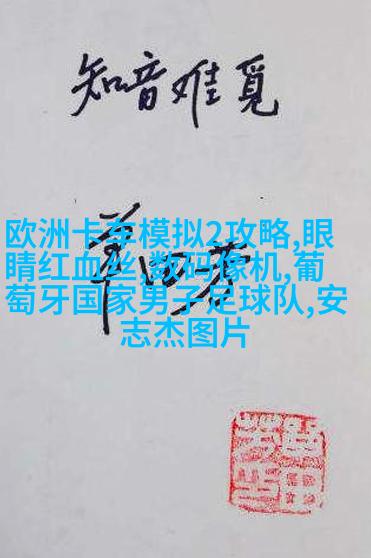 知音难觅
欧洲卡车模拟2攻略,眼
睛红血丝,数码像机,葡
萄牙国家男子足球队,安
志杰图片
单田芳